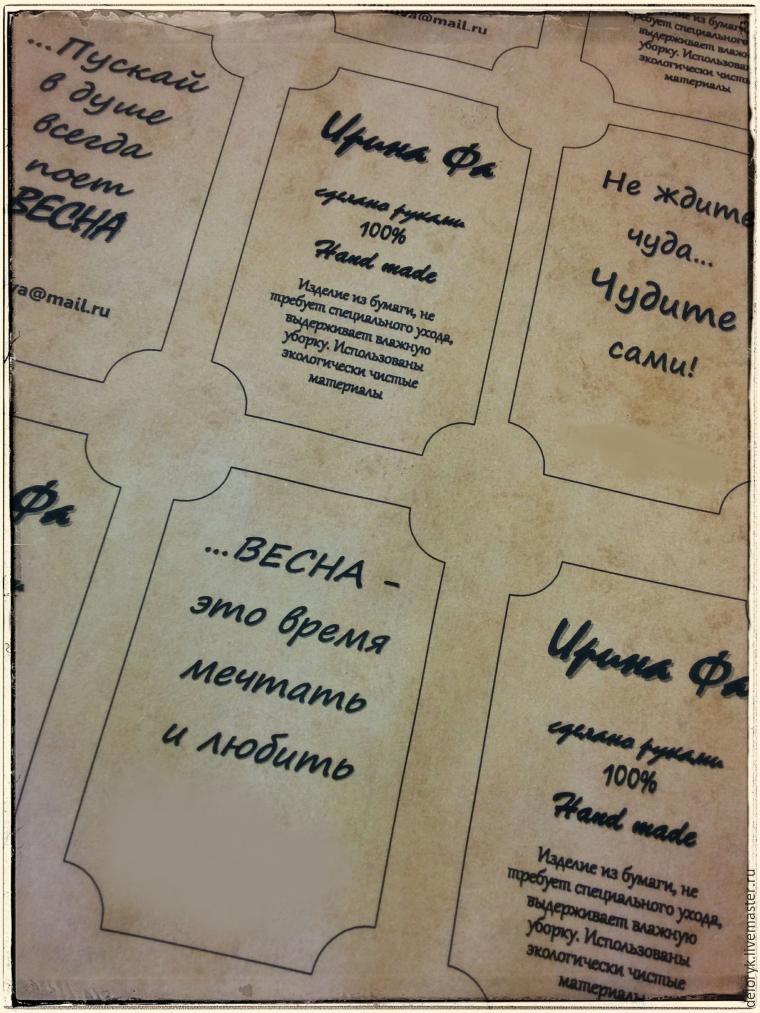 ...Пускай
в душе
всегда
поет
ВЕСНА
va@mail.ru
va@mail.ru
Ирина Фа
сделано руками
100%
Hand made
Изделие из бумаги, не
требует специального ухода,
выдерживает влажную
уборку. Использованы
экологически чистые
материалы
требует специального
выдерживает влажн
уборку. Использова
экологически чисты
материалы
Не ждите
чуда...
Чудите
сами!
Фа
...ВЕСНА -
это время
мечтать
и любить
Ирина Фа
сделано руками
100%
Hand made
Изделие из бумаги, не
требует специального ухода,
выдерживает влажную
уборку. Использованы
экологически чистые
материалы
deloryk.livemaster.ru